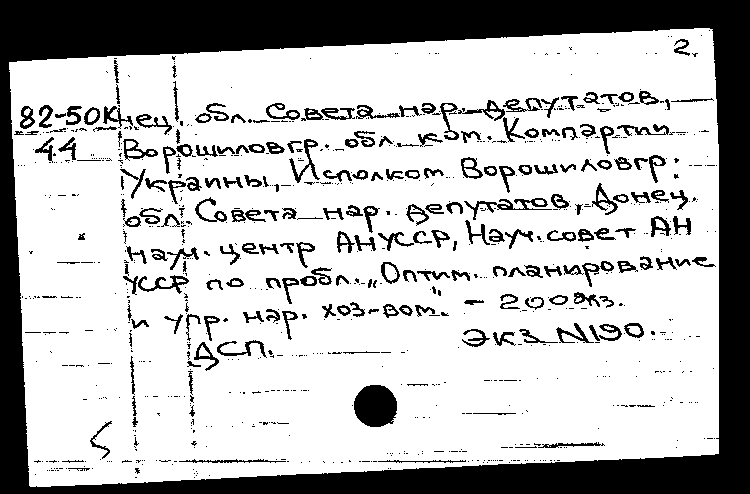 2.
82-50К нец. обл. Совета нар. депутатов,
44 Ворошиловгр. обл. ком. Компартии
Украины, Исполком Ворошиловгр.
обл. Совета нар. депутатов, Донец.
науч. центр АНУССР, Науч. совет АН
УССР по пробл. „Оптим. планирование
и упр. нар. хоз-вом." - 200экз.
ДСП. Экз N190.